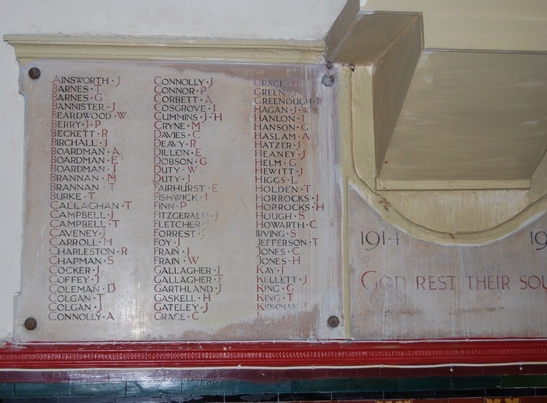 AINSWORTH · J
BARNES · T
BARNES · G
BANNISTER · J
BEARDWOOD · W
BERRY · J · P
BECKETT · R
BIRCHALL · J
BOARDMAN · A
BOARDMAN · E
BOARDMAN · J
BRANNAN · M
BRANNAN · T
BURKE · T
CALLAGHAN · T
CAMPBELL · J
CAMPBELL · T
CAVENEY · J
CARROLL · M
CHARLESTON · R
CHAPMAN · S
COCKER · J
COFFEY · J
COLEMAN · D
COLGAN · T
COLGAN · J
CONNOLLY · A
CONNOLLY · J
CONNOR · P
CORBETT · A
COSGROVE · J
CUMMINS · J · H
CRYNE · M
DAVIES · C
DEAVY · R
DILLON · E
DOBSON · G
DUTY · W
DUTY · J
FAIRHURST · E
FISHWICK · J
FINN · P
FITZGERALD · J
FLETCHER
FORREST · J
FOY · J
FRAIN · J
FRAIN · W
GALLAGHER · J
GALLAGHER · F
GARTHLAND · J
GASKELL · H
GATELEY · J
GRACE · C
GRACE
GREEN
GREENOUGH
HAGAN · J · W
HANLON · J
HANSON · G
HASLAM · A
HATZER · J
HEANEY · J
HELM · G
HEWITT · J
HIGGS · L
HOLDEN · T
HORROCKS · J
HORROCKS · H
HOUGH · S
HOWARTH · C
IRVING · S
JEFFERSON · T
JONES · G
JONES · H
KAY · J
KELLETT · J
KING · G
KING · T
KIRKMAN · T
1914 19
GOD REST THEIR SOU